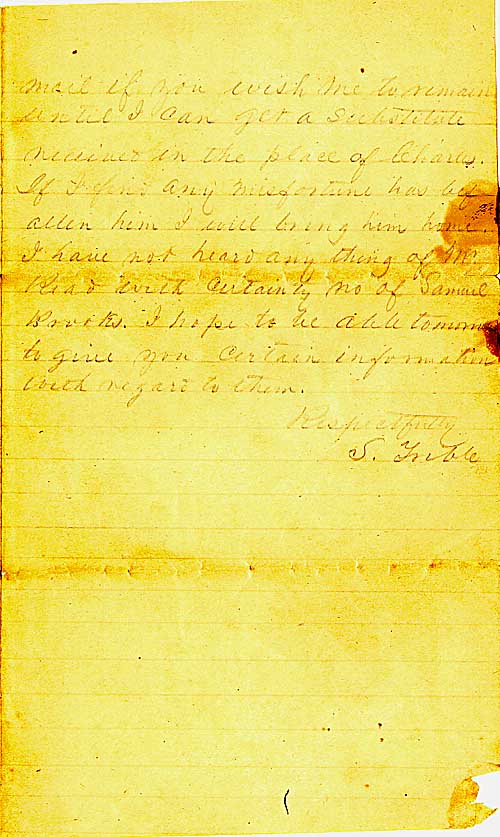 mail if you wish me to remain
until I can get a substitute
received in the place of Charles.
If I find any misfortune has bef
allen him I will bring him home.
I have not heard any thing of Mr
Read with certainty no of Samuel
Brooks. I hope to be able tomorrow
to give you certain information
with regard to them.
Respectfully
S. Trible